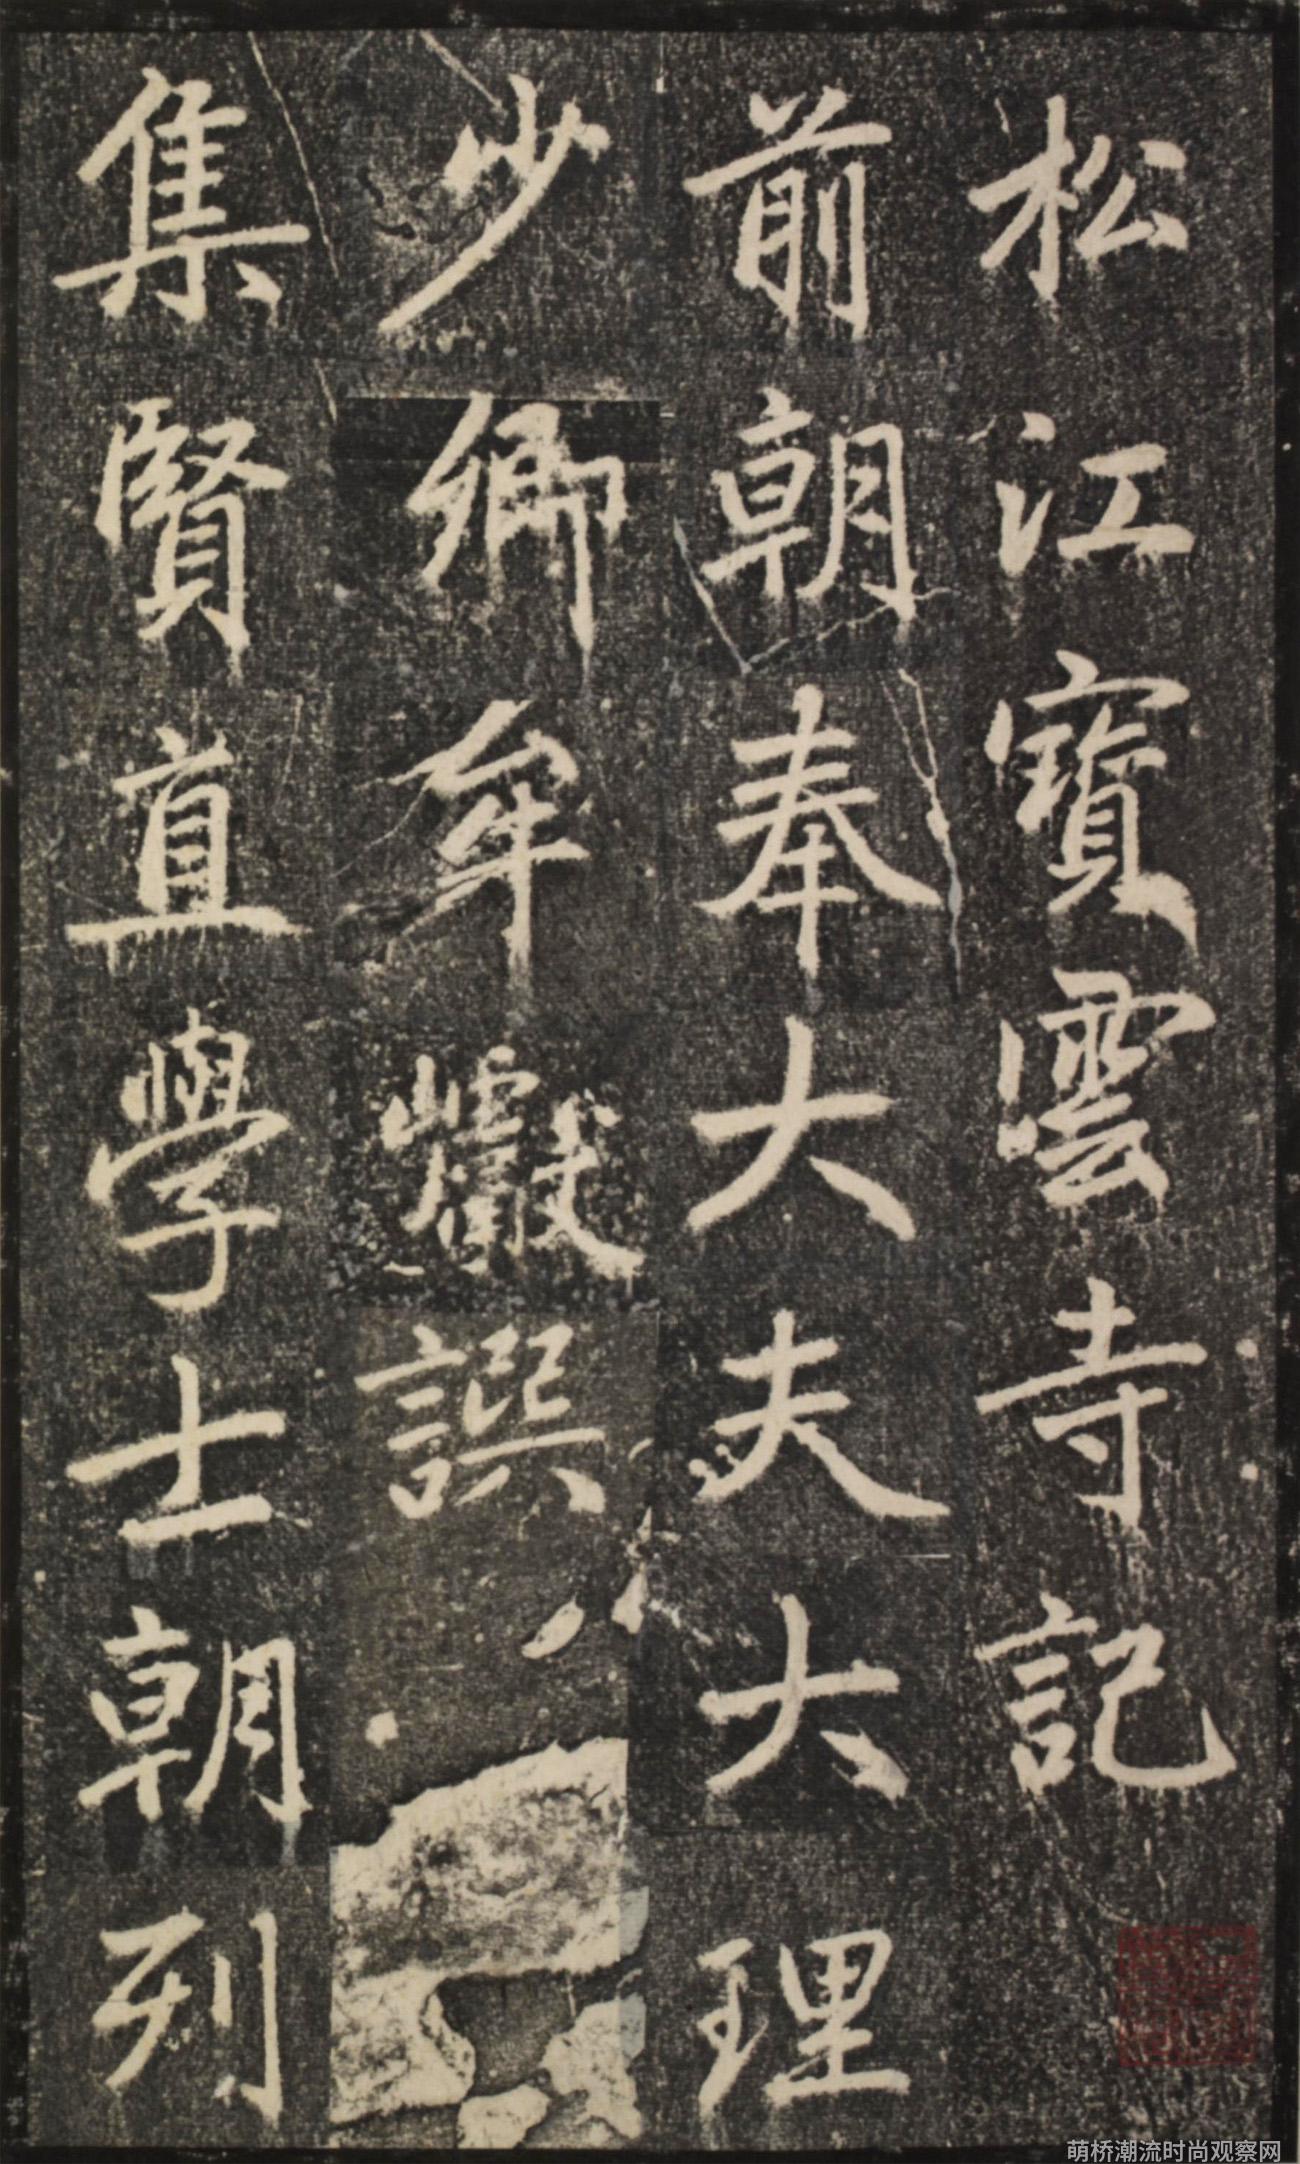 松江寶雲寺記
前朝奉大夫大理
少卿牟巘譔
集賢直學士朝列
萌桥潮流时尚观察网